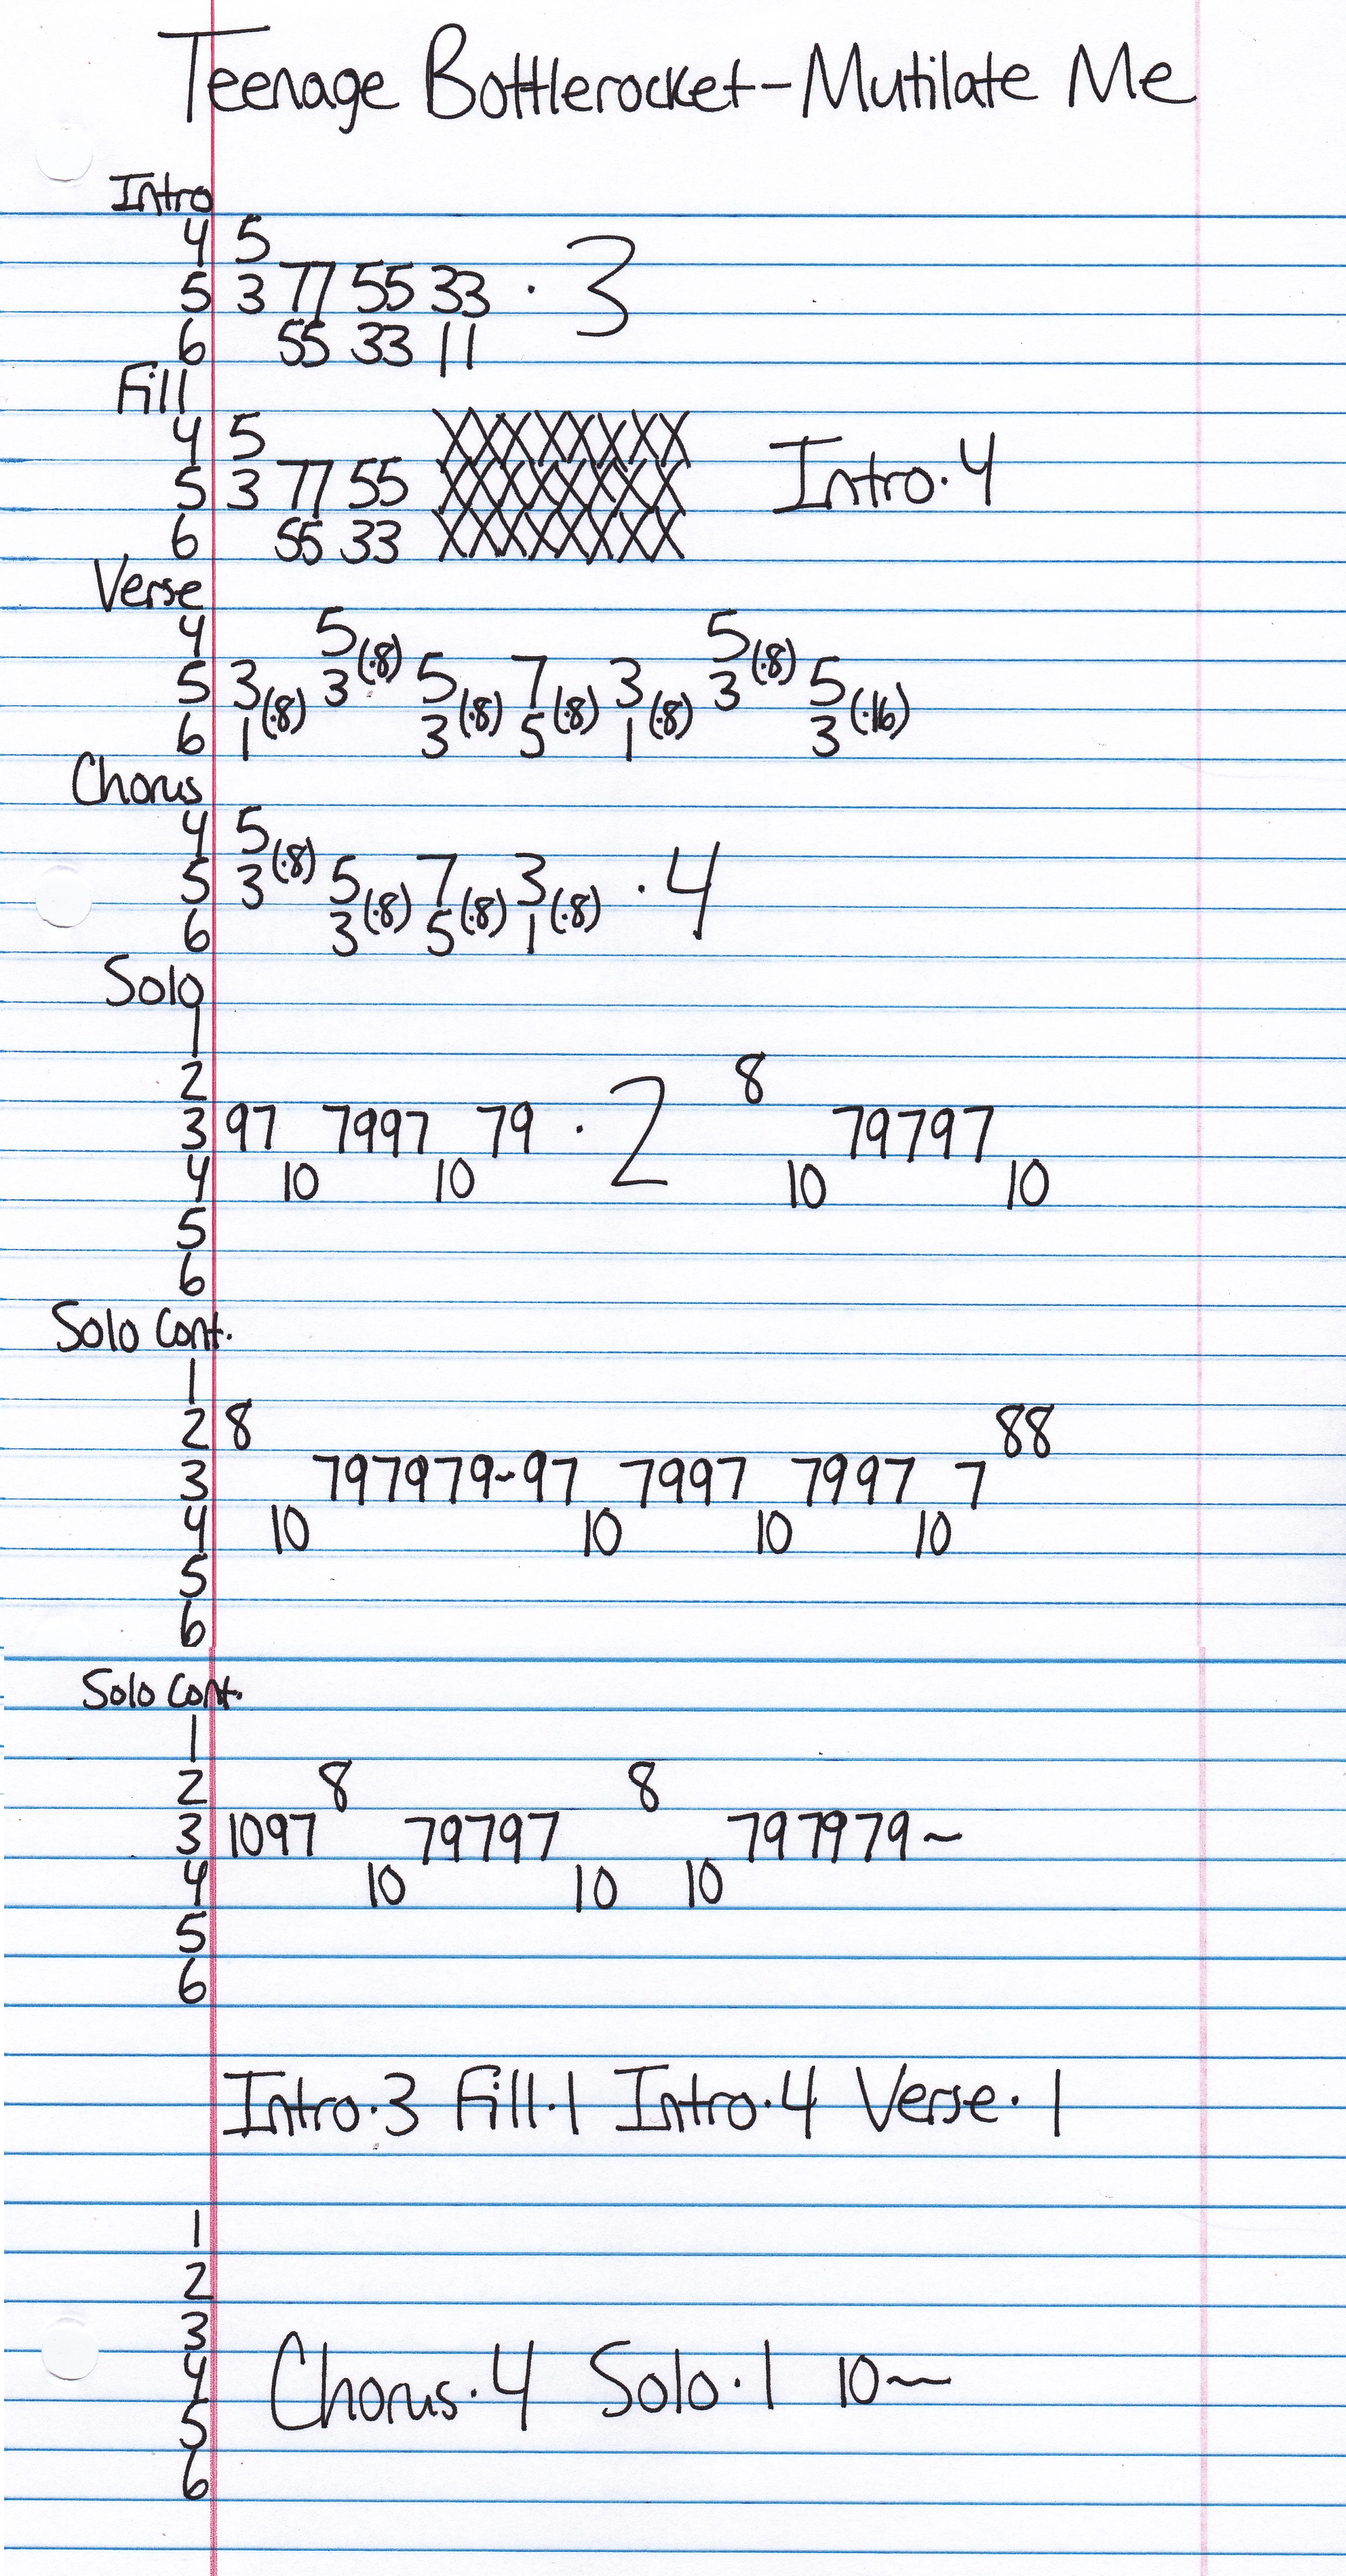 Teenage Bottlerocket-Mutilate Me
Intro
4 5
5 3 77 55 33 · 3
6 55 33 11
Fill
4 5 XXXXXXXX
5 3 77 55 XXXXXXXX Intro·4
6 55 33 XXXXXXXX
Verse
4 5(·8) 5(·8)
5 3(·8) 3 5(·8) 7(·8) 3(·8) 3 5(·16)
6 1 3 5 1 3
Chorus
4 5(·8)
5 3 5(·8) 7(·8) 3(·8) · 4
6 3 5 1
Solo
1
2 8
3 97 7997 79 · 2 79797
4 10 10 10 10
5
6
Solo Cont.
1
2 8 88
3 797979~97 7997 7997 7
4 10 10 10 10
5
6
Solo Cont.
1
2 8 8
3 1097 79797 797979~
4 10 10 10
5
6
Intro·3 Fill·1 Intro·4 Verse·1
1
2
3
4 Chorus·4 Solo·1 10~~
5
6